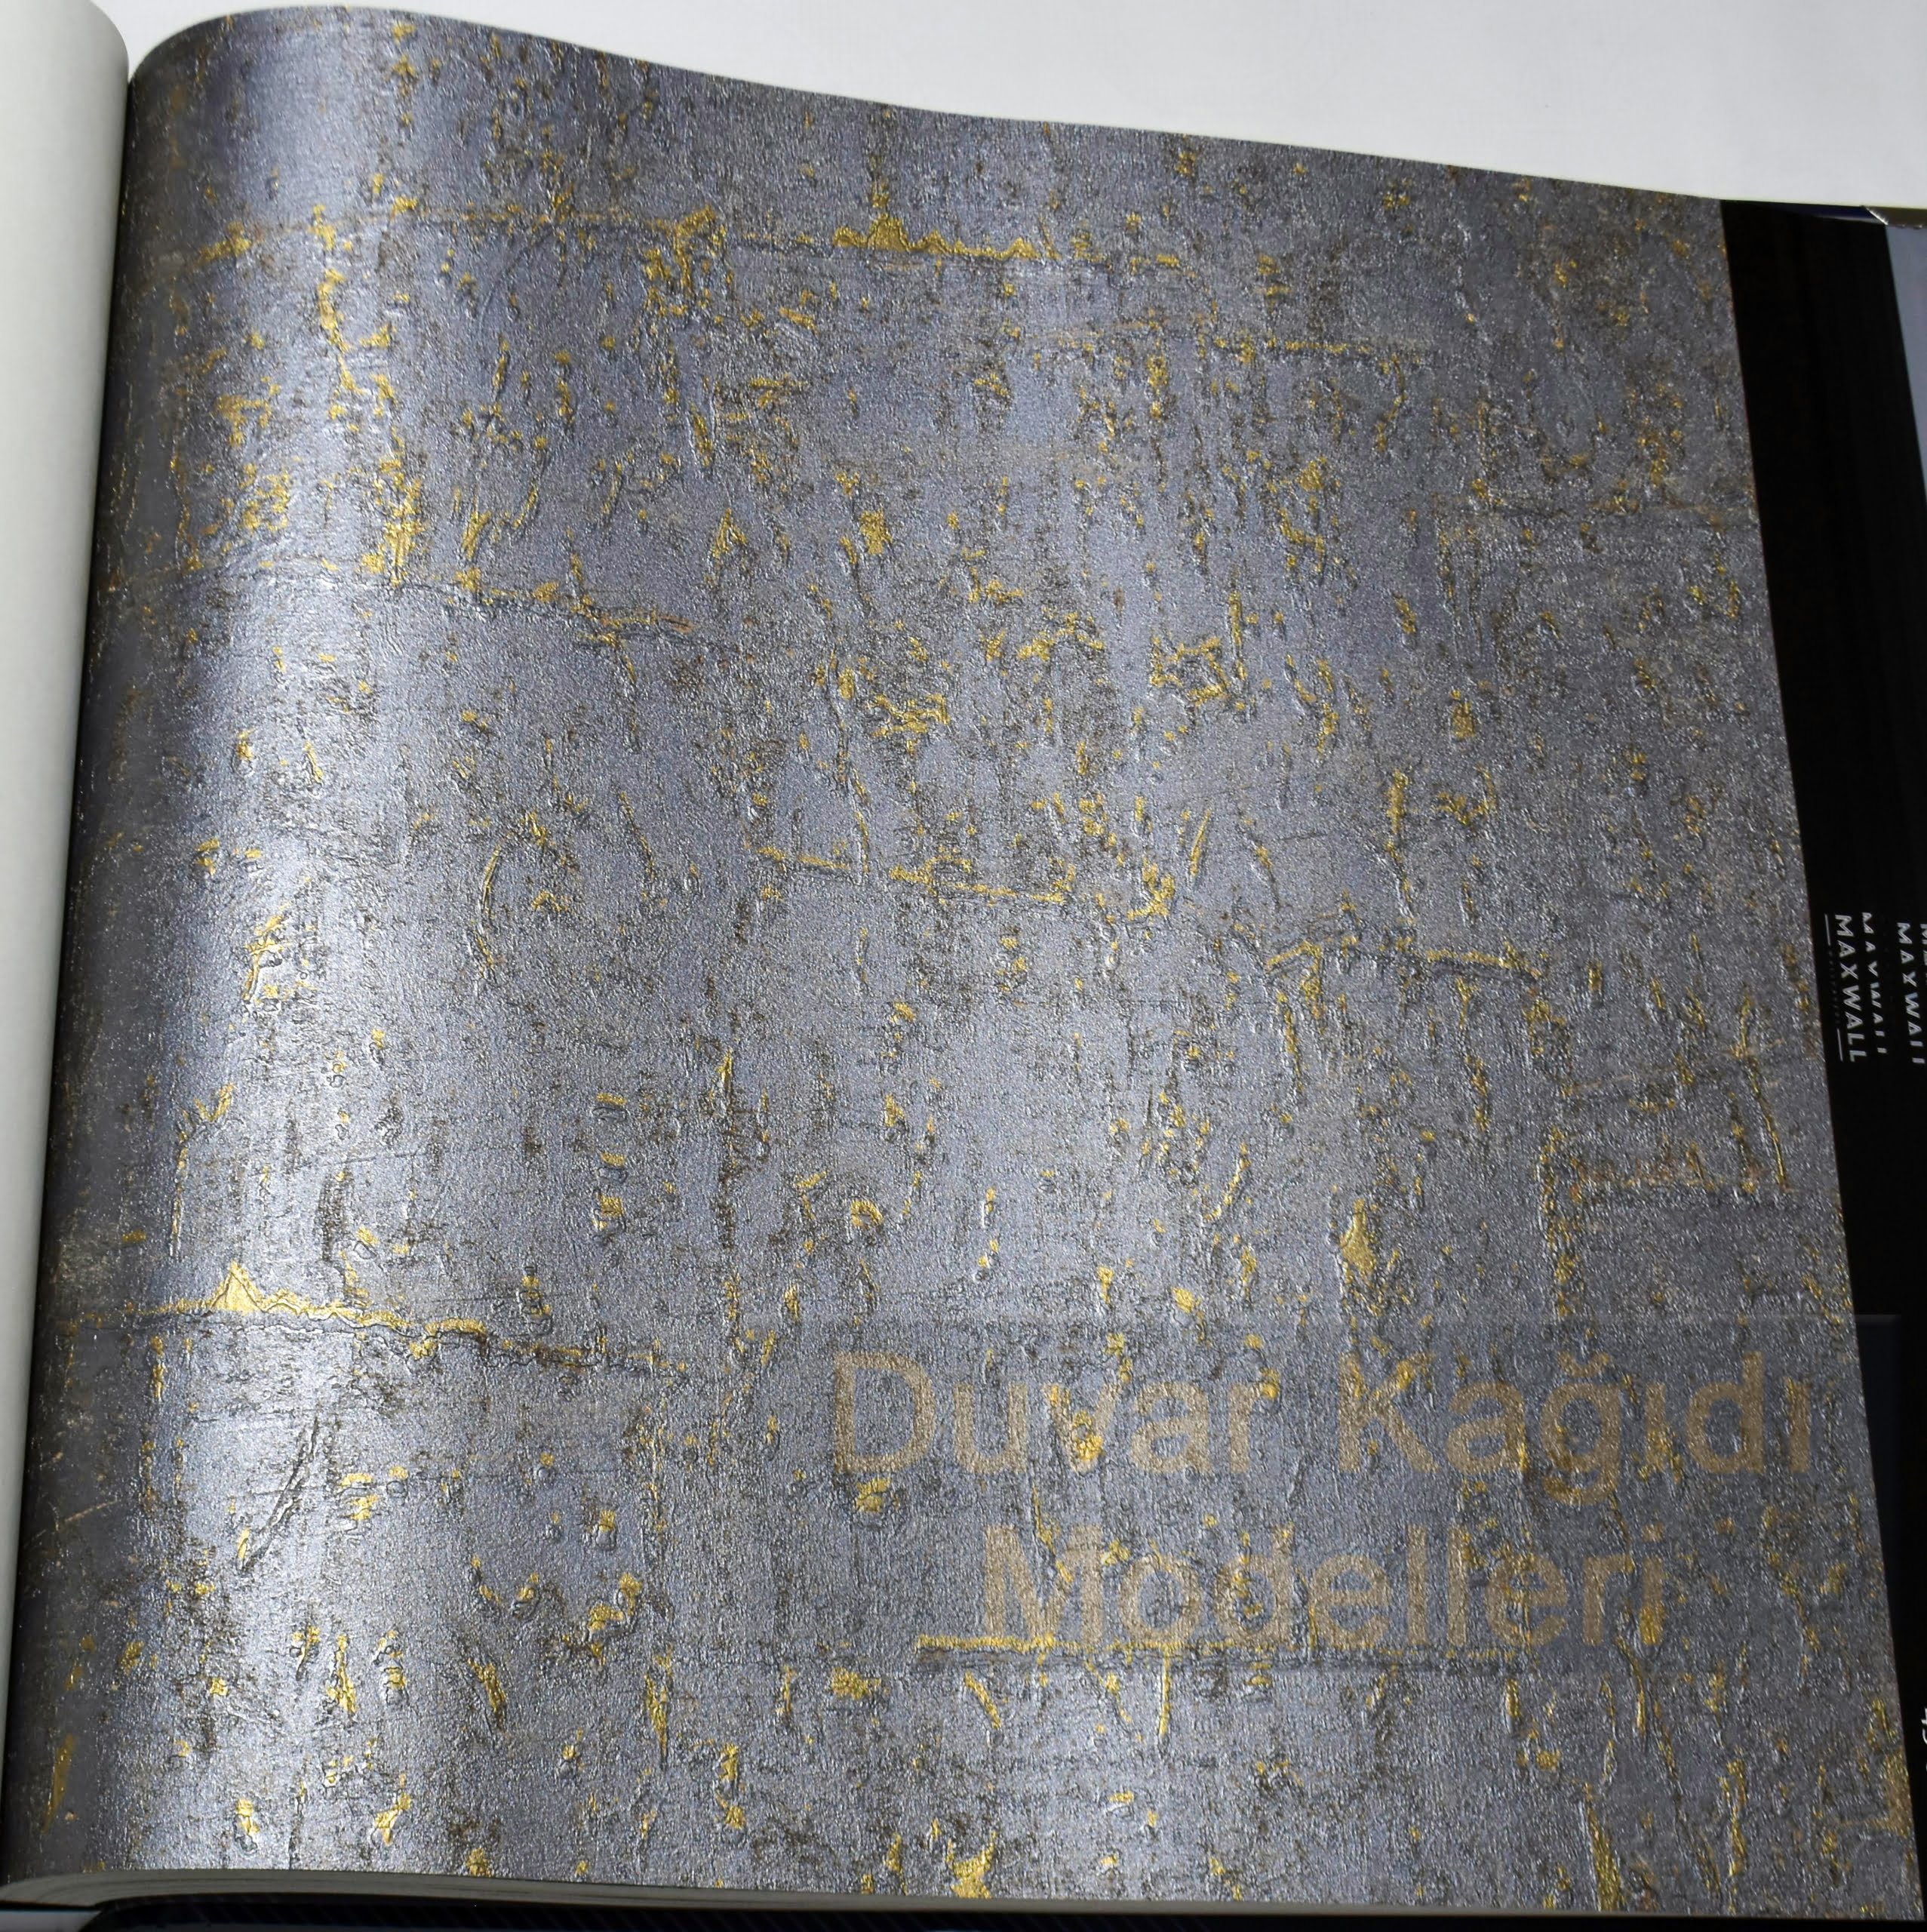 Duvar Kağıdı
Modelleri
MAXWALL
MAXWALL
MAXWALL